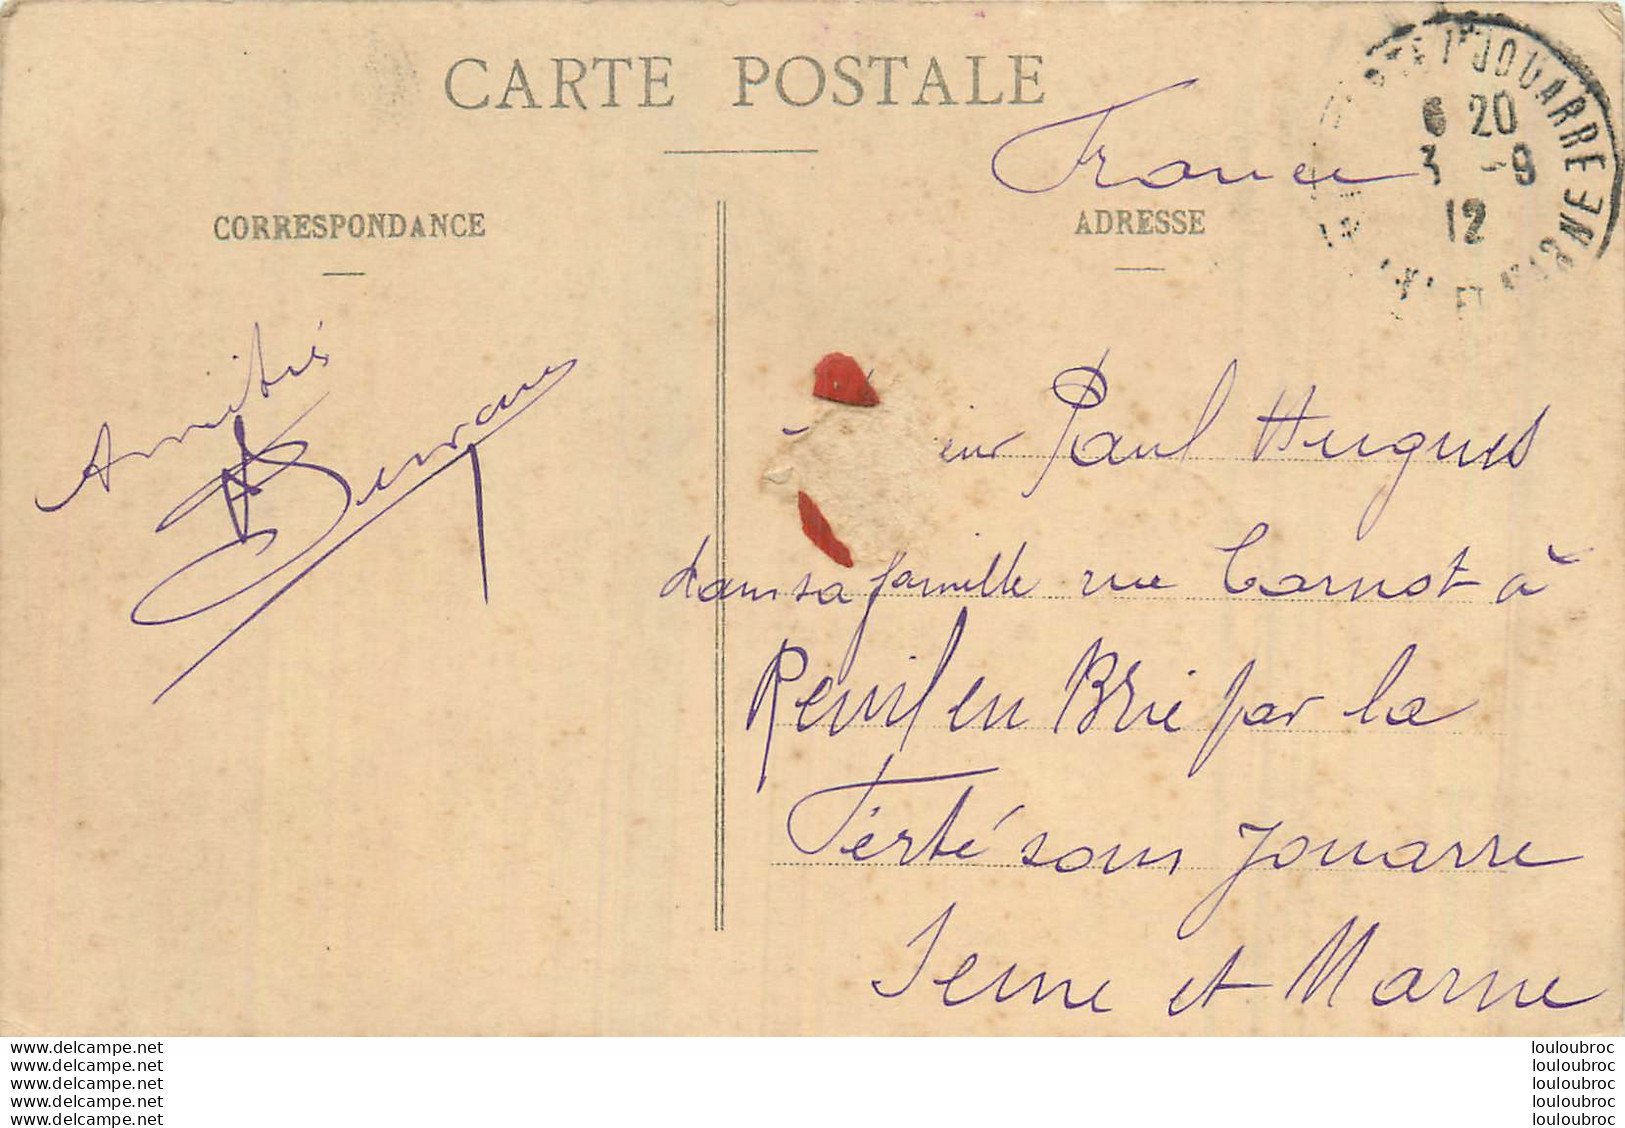 CARTE POSTALE
France
CORRESPONDANCE
ADRESSE
JOUARRE
6 20
3 -9
12
ET MARNE
Amitiés
eur Paul Hugues
dans sa famille rue Carnot à
Reuil en Brie par la
Ferté sous Jouarre
Seine et Marne
www.delcampe.net
www.delcampe.net
www.delcampe.net
www.delcampe.net
www.delcampe.net
louloubroc
louloubroc
louloubroc
louloubroc
louloubroc